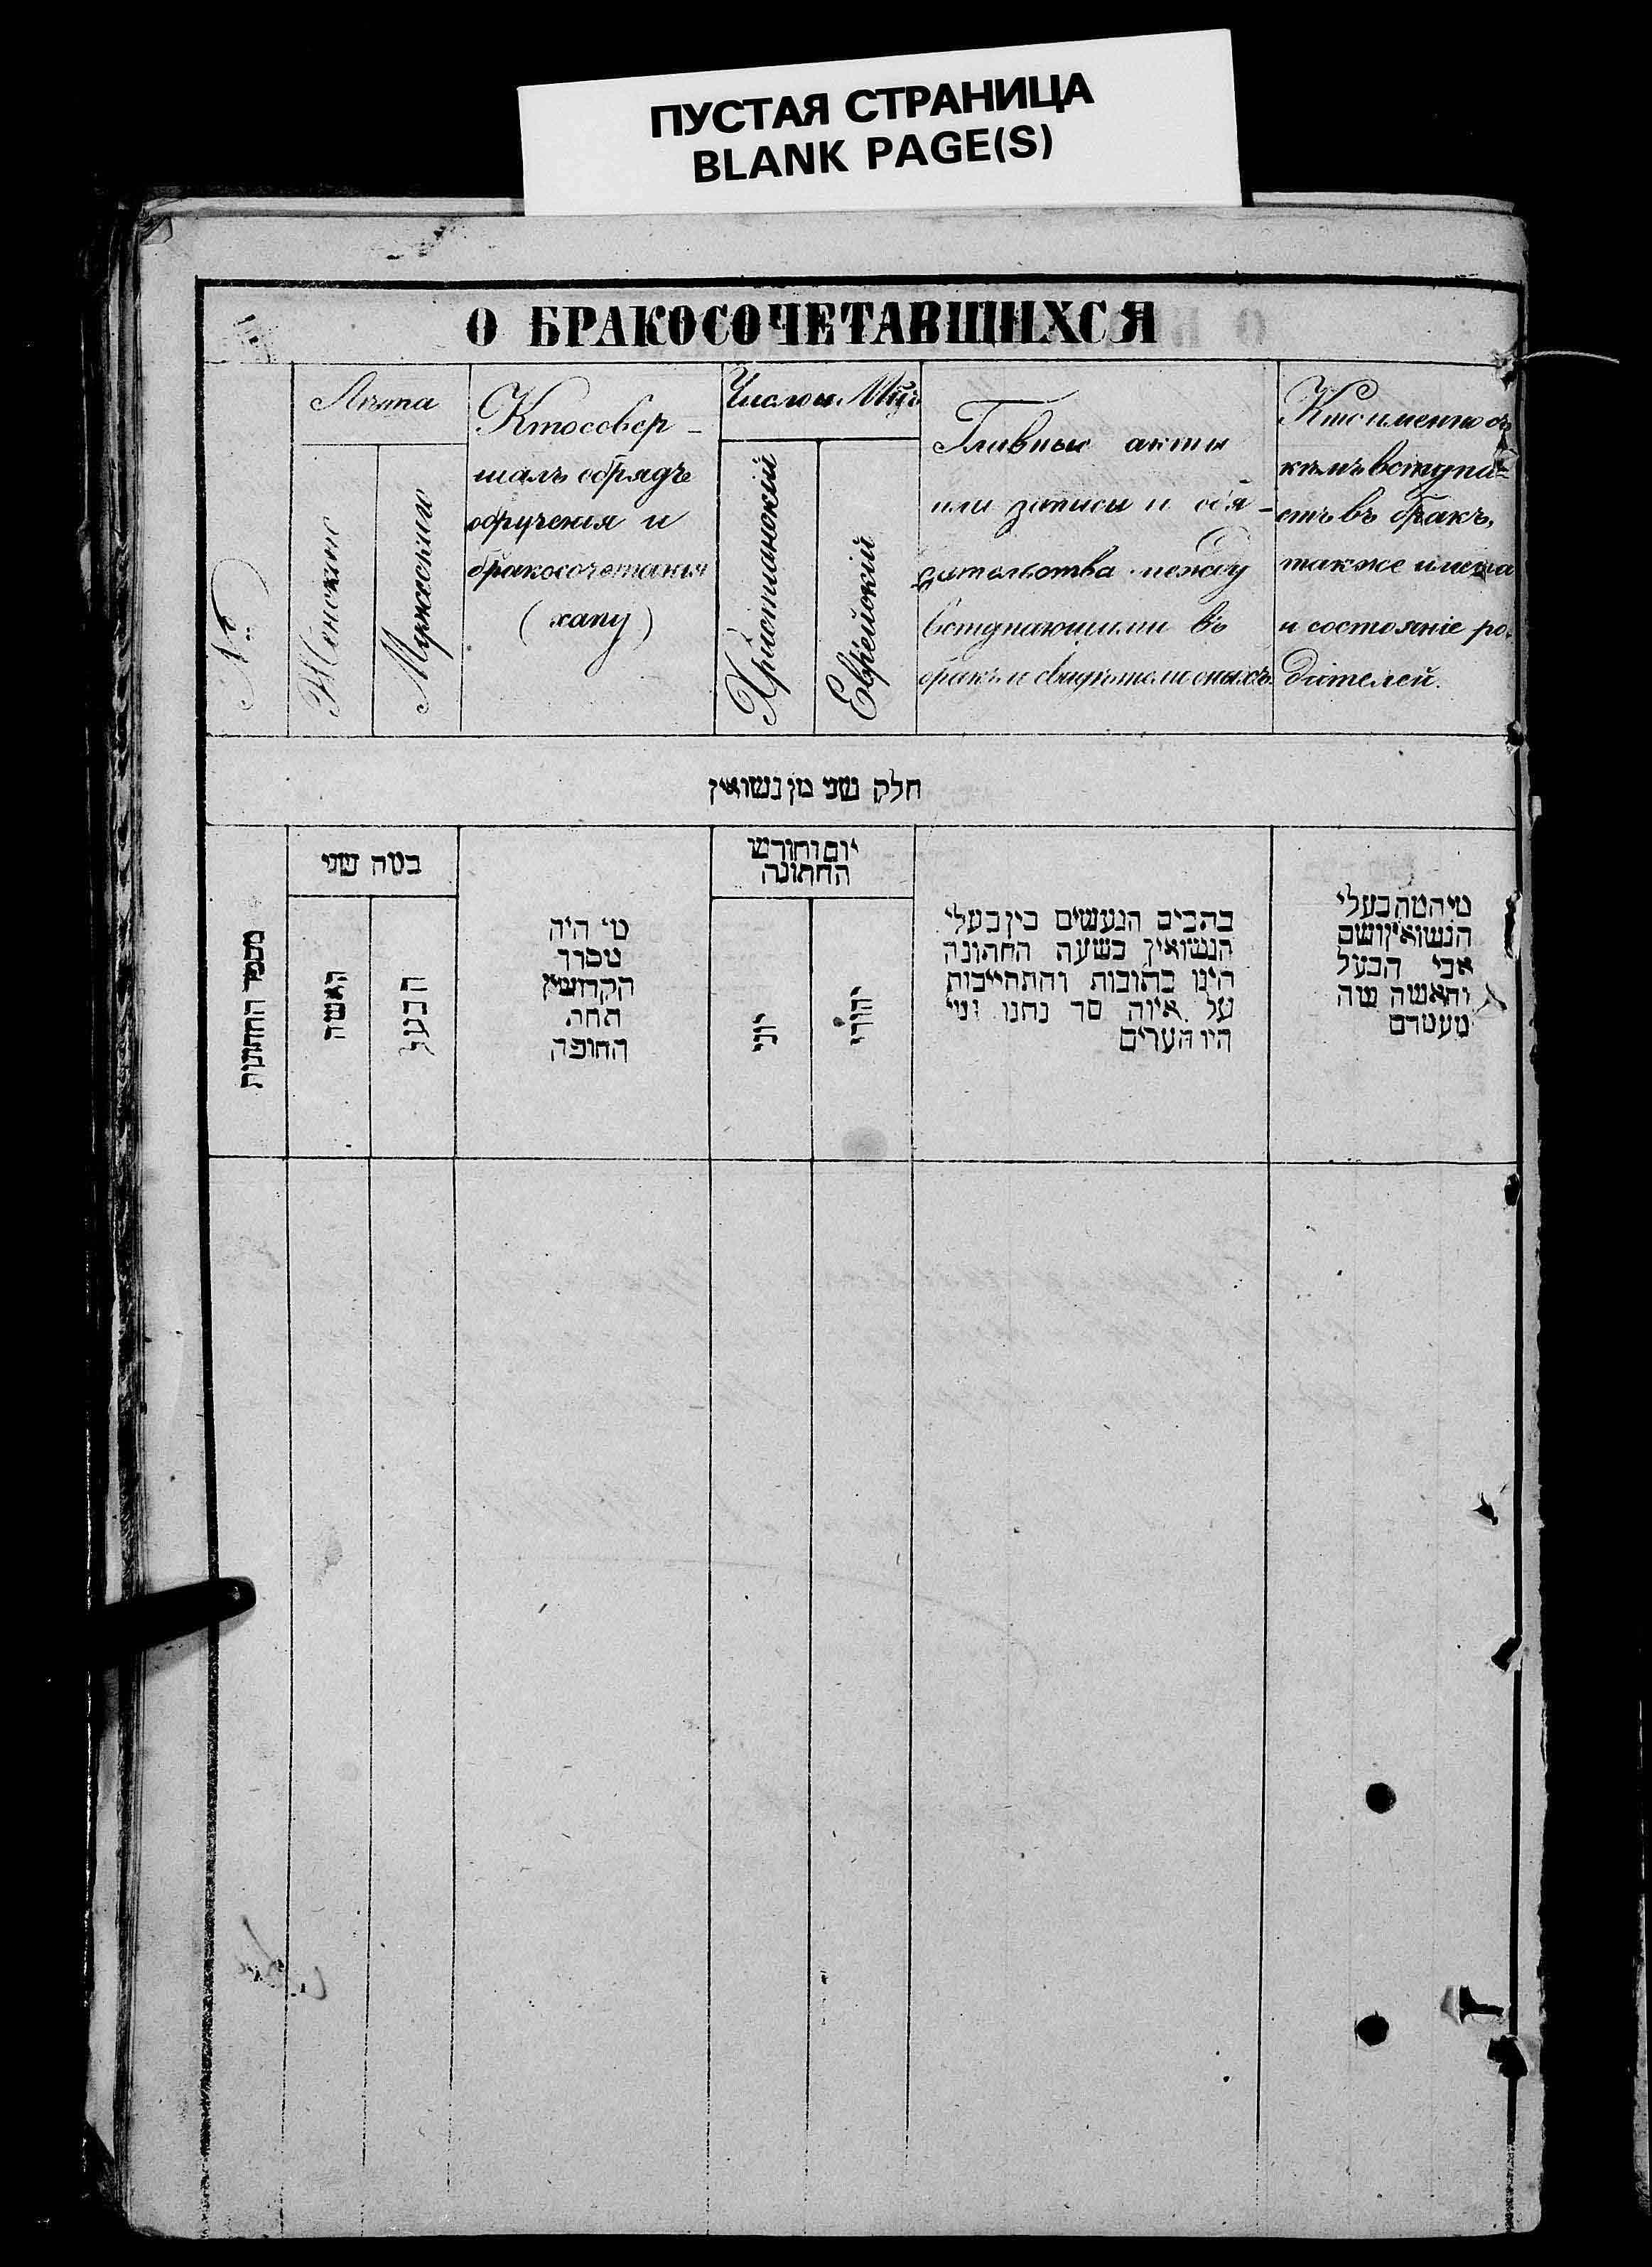 ПУСТАЯ СТРАНИЦА
BLANK PAGE(S)
О БРАКОСОЧЕТАВШИХСЯ
№
Лѣта
Женскіе
Мужескіе
Кто совер-
шалъ обрядъ
обрученія и
бракосочетанія
(хапу)
Число и Мцъ
Христіанскій
Еврейскій
Главные акты
или записи и обя-
зательства между
вступающими въ
бракъ и свидѣтели оныхъ
Кто именно съ
кѣмъ вступа-
етъ въ бракъ,
также имена
и состояніе ро-
дителей.
חלק שני מן נשואין
מספר החתונות
כמה שני
האשה
הבעל
מי היה
מסדר
הקדושין
תחת
החופה
יום וחודש
החתונה
יוני
יהודי
כתבים הנעשים בין בעלי
הנשואין בשעה החתונה
היינו כתובות והתחייבות
על איזה סך נתנו ומי
היו העדים
מי המה בעלי
הנשואין ושם
אבי הבעל
והאשה מה
מעמדם